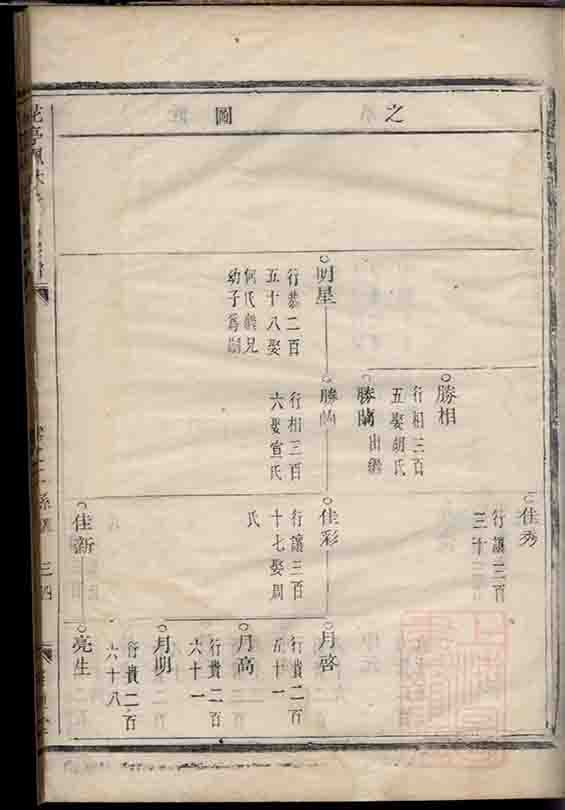 之圖
明星
行恭二百
五十八娶
何氏繼兄
幼子為嗣
勝相
行相三百
五娶胡氏
勝蘭
出繼
勝蘭
行相三百
六娶宣氏
佳秀
行讓三百
三十
佳彩
行讓三百
十七娶周
氏
佳新
月啓
行貴二百
五十一
月高
行貴二百
六十一
月明
行貴二百
六十八
亮生